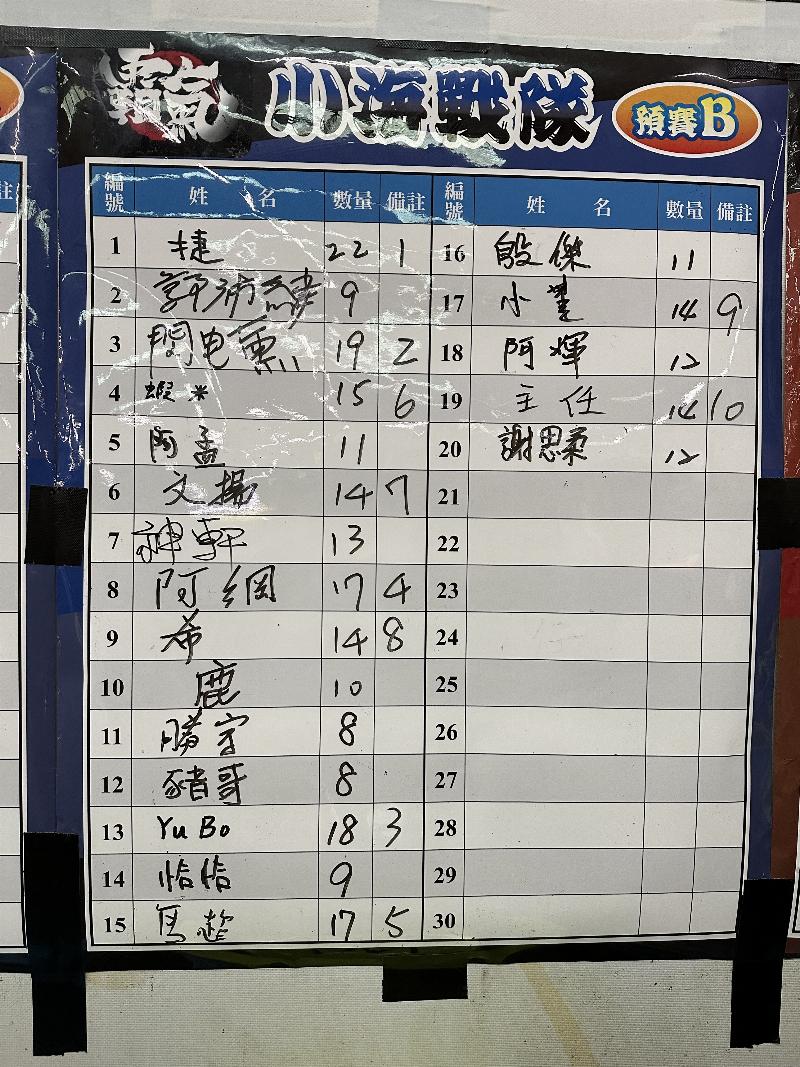 霸氣 小海戰隊 預賽B
編號 姓 名 數量 備註
1 捷 22 1
2 9
3 閃电熏 19 2
4 蝦米 15 6
5 阿孟 11
6 文揚 14 7
7 神軒 13
8 阿綱 17 4
9 希 14 8
10 鹿 10
11 勝宇 8
12 豬哥 8
13 Yu Bo 18 3
14 恰恰 9
15 17 5
編號 姓 名 數量 備註
16 殷傑 11
17 小 14 9
18 阿輝 12
19 主任 14 10
20 謝思柔 12
21
22
23
24
25
26
27
28
29
30
註